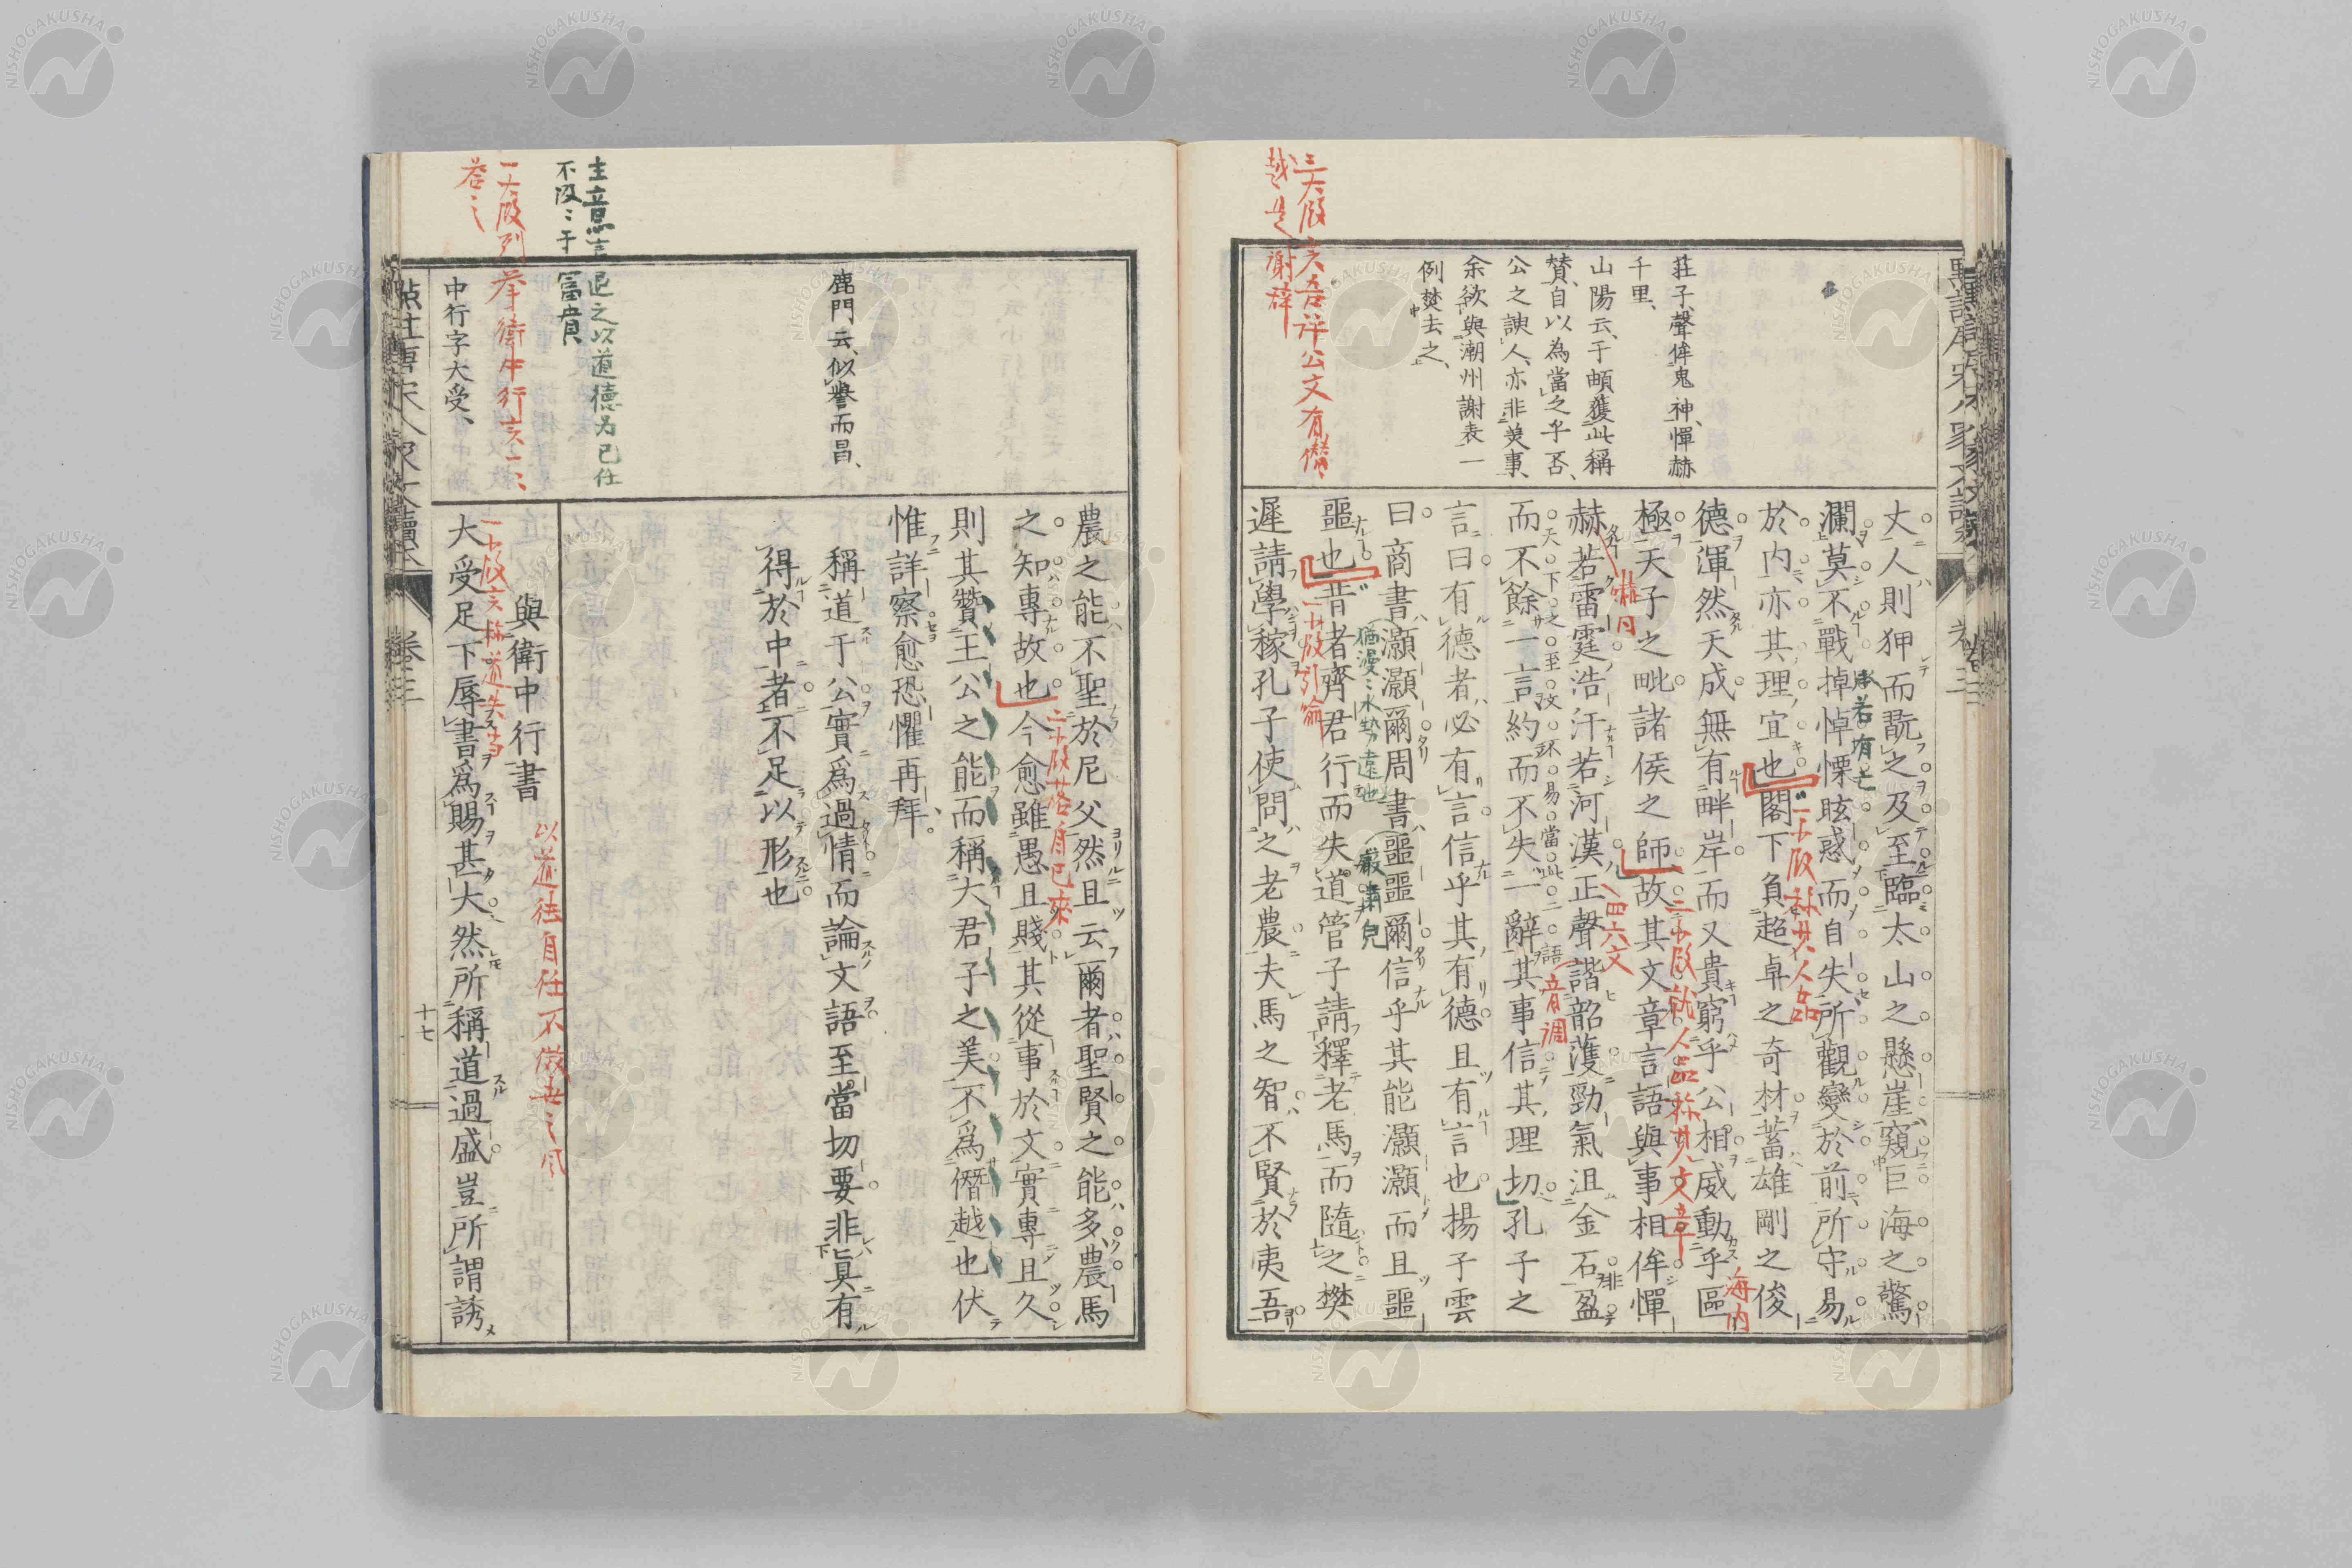 莊子、聲侔鬼神、憚赫
千里、
山陽云、于頔獲此稱
賛、自以為當之乎否、
公之諛人、亦非美事、
余欲與潮州謝表一
例焚去之、
丈人則狎而翫之及至臨太山之懸崖窺巨海之驚
瀾莫不戰掉悼慄眩惑而自失所觀變於前所守易
於内亦其理宜也閣下負超卓之奇材蓄雄剛之俊
德渾然天成無有畔岸而又貴窮乎公相威動乎區
極天子之毗諸侯之師故其文章言語與事相侔憚
赫若雷霆浩汗若河漢正聲諧韶濩勁氣沮金石盈
而不餘一言約而不失一辭其事信其理切孔子之
言曰有德者必有言信乎其有德且有言也揚子雲
曰商書灝灝爾周書噩噩爾信乎其能灝灝而且噩
噩也昔者齊君行而失道管子請釋老馬而隨之樊
遲請學稼孔子使問之老農夫馬之智不賢於夷吾
三大段
越是謝辞
承若有亡
二小段称其人品
三小段就人品称其文章
海内
四六文
音調
猶漫〻水勢遠地
嚴肅皃
一小段引喻
鹿門云、似譽而昌、
農之能不聖於尼父然且云爾者聖賢之能多農馬
之知專故也今愈雖愚且賤其從事於文實專且久
則其贊王公之能而稱大君子之美不為僭越也伏
惟詳察愈恐懼再拜、
稱道于公實爲過情而論文語至當切要非眞有
得於中者不足以形也
二小段落自已來
主意言退之以道德為己任
不汲〻于冨貴
一大段列挙衛中行言一〻
答之
中行字大受、
與衛中行書
以道徃自任不做世之風
大受足下辱書爲賜甚大然所稱道過盛豈所謂誘
卷三
十七